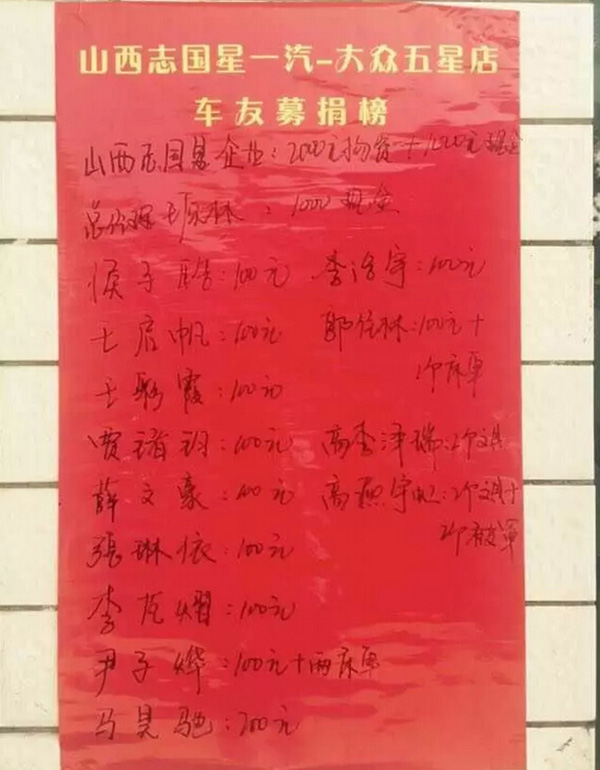 山西志国星一汽-大众五星店
车友募捐榜
山西志国星企业：2000元物资+1000元现金
总经理王 林：1000现金
侯子皓：100元 李浩宇：100元
王启帆：100元 郭 林：100元+
1个床单
王 霞：100元
贾 ：100元 高李泽瑞：2个文具
薛文豪：100元 高 宇 ：2个文具+
2个被罩
張琳依：100元
李 熠：100元
尹子烨：100元+两床单
马昊驰：200元